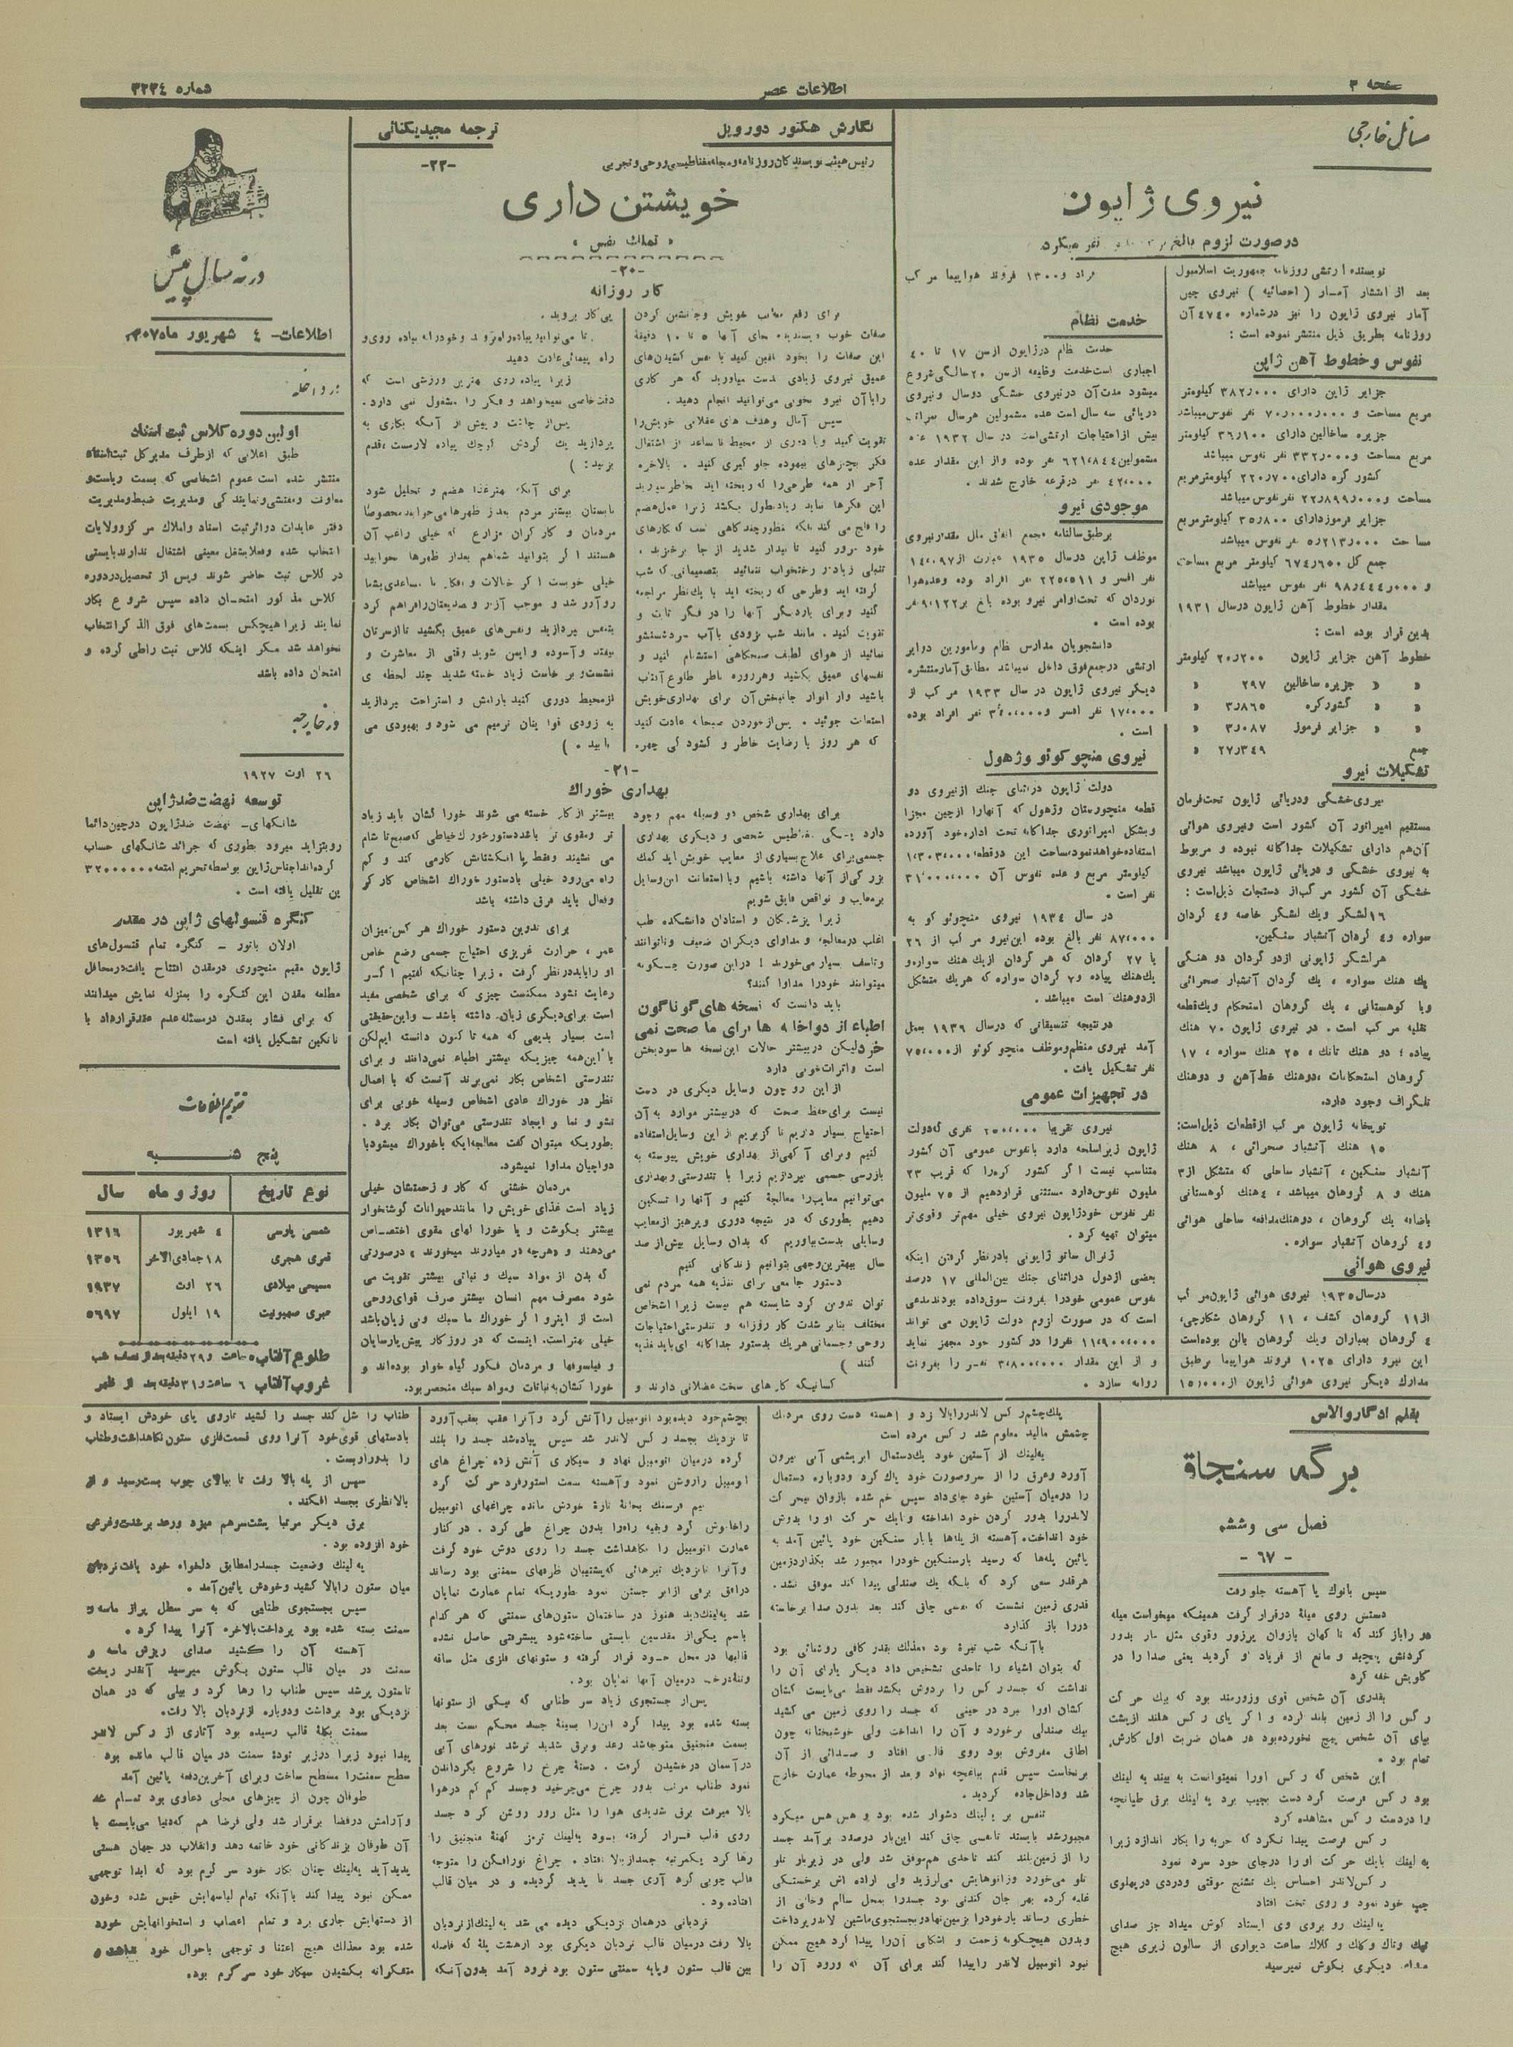 صفحه ۳
اطلاعات عصر
شماره ۳۲۳۴
مسائل خارجی
نیروی ژاپون
در صورت لزوم بالغ بر نفر میگردد
نویسنده ارتشی روزنامه جمهوریت اسلامبول
بعد از انتشار آمار (احصائیه) نیروی چین
آمار نیروی ژاپون را نیز در شماره ۴۷۴۰ آن
روزنامه بطریق ذیل منتشر نموده است:
نفوس و خطوط آهن ژاپن
جزایر ژاپن دارای ۳۸۲٫۰۰۰ کیلومتر
مربع مساحت و ۷۰٫۰۰۰٫۰۰۰ نفر نفوس میباشد
جزیره ساخالین دارای ۳۶٫۱۰۰ کیلومتر
مربع مساحت و ۳۳۲٫۰۰۰ نفر نفوس میباشد
کشور گره دارای ۲۲۰٫۷۰۰ کیلومتر مربع
مساحت و ۲۲٫۸۹۹٫۰۰۰ نفر نفوس میباشد
جزایر فرموز دارای ۳۵٫۸۰۰ کیلومتر مربع
مساحت ۵٫۲۱۳٫۰۰۰ نفر نفوس میباشد
جمع کل ۶۷۴٫۶۵۰ کیلومتر مربع مساحت
و ۹۸٫۴۴۴٫۰۰۰ نفر نفوس میباشد
مقدار خطوط آهن ژاپون در سال ۱۹۳۱
بدین قرار بوده است:
خطوط آهن جزایر ژاپون ۲۰٫۲۰۰ کیلومتر
» » جزیره ساخالین ۲۹۷ »
» » کشور گره ۳٫۸۶۵ »
» » جزایر فرموز ۳٫۰۸۷ »
جمع ۲۷٫۳۴۹ »
تشکیلات نیرو
نیروی خشگی و دریائی ژاپون تحت فرمان
مستقیم امپراتور آن کشور است و نیروی هوائی
آن هم دارای تشکیلات جداگانه نبوده و مربوط
به نیروی خشگی و دریائی ژاپون میباشد نیروی
خشگی آن کشور مرکب از دستجات ذیل است:
۱۶ لشگر و یك لشگر خاصه و ۴ گردان
سواره و ۴ گردان آتشبار سنگین.
هر لشگر ژاپونی از دو گردان دو هنگی
یك هنگ سواره، یك گردان آتشبار صحرائی
و یا کوهستانی، یك گروهان استحکام و یك قطعه
نقلیه مرکب است. در نیروی ژاپون ۷۰ هنگ
پیاده؛ دو هنگ تانك، ۲۵ هنگ سواره، ۱۷
گروهان استحکامات، دو هنگ خط آهن و دو هنگ
تلگراف وجود دارد.
توپخانه ژاپون مرکب از قطعات ذیل است:
۱۵ هنگ آتشبار صحرائی، ۸ هنگ
آتشبار سنگین، آتشبار ساحلی که متشکل از ۳
هنگ و ۸ گروهان میباشد، ۴ هنگ کوهستانی
باضافه یك گروهان، دو هنگ مدافعه ساحلی هوائی
و ۴ گروهان آتشبار سواره.
نیروی هوائی
در سال ۱۹۳۵ نیروی هوائی ژاپون مرکب
از ۱۱ گروهان کشف، ۱۱ گروهان شکارچی،
۴ گروهان بمباران و یك گروهان بالن بوده است
این نیرو دارای ۱۰۲۵ فروند هواپیما بر طبق
مدارك دیگر نیروی هوائی ژاپون از ۱۵٫۰۰۰
افراد و ۱۳۰۰ فروند هواپیما مرکب
خدمت نظام
خدمت نظام در ژاپون از سن ۱۷ تا ۴۰
اجباری است خدمت وظیفه از سن ۲۰ سالگی شروع
میشود مدت آن در نیروی خشگی دو سال و نیروی
دریائی سه سال است عده مشمولین هر سال
بیش از احتیاجات ارتشی است در سال ۱۹۳۲ عده
مشمولین ۶۲۱٫۸۴۴ نفر بوده و از این مقدار عده
۴۲٫۰۰۰ نفر در قرعه خارج شدند.
موجودی نیرو
بر طبق سالنامه مجمع اتفاق ملل مقدار نیروی
موظف ژاپن در سال ۱۹۳۵ عبارت از ۱۴٫۰۹۷
نفر افسر و ۲۲۵٫۵۱۱ نفر افراد بوده و عده هوا
نوردان که تحت اوامر نیرو بوده بالغ بر ۹٫۱۲۲ نفر
بوده است.
دانشجویان مدارس نظام و مامورین دوایر
ارتشی در جمع فوق داخل نمیباشد مطابق آمار منتشره
دیگر نیروی ژاپون در سال ۱۹۳۳ مرکب از
۱۷٫۰۰۰ نفر افسر و نفر افراد بوده
است.
نیروی منچوکوئو و ژهول
دولت ژاپون در اثنای جنگ از نیروی دو
قطعه منچورستان و ژهول که آنها را از چین مجزا
و بشکل امپراتوری جداگانه تحت اداره خود آورده
استفاده خواهد نمود مساحت این دو قطعه ۱٫۳۰۳٫۰۰۰
کیلومتر مربع و عده نفوس آن ۳۱٫۰۰۰٫۰۰۰
نفر است.
در سال ۱۹۳۴ نیروی منچوکو به
۸۷٫۰۰۰ نفر بالغ بوده این نیرو مرکب از ۲۶
یا ۲۷ گردان که هر گردان از یك هنگ سواره و
یك هنگ پیاده و ۷ گردان سواره که هر یك متشکل
از دو هنگ است میباشد.
در نتیجه تنسیقاتی که در سال ۱۹۳۶ بعمل
آمد نیروی منظم و موظف منچوکوئو از ۷۵٫۰۰۰
نفر تشکیل یافت.
در تجهیزات عمومی
نیروی تقریبا ۲۵۰٫۰۰۰ نفری که دولت
ژاپون زیر اسلحه دارد با نفوس عمومی آن کشور
متناسب نیست اگر کشور کره را که قریب ۲۳
ملیون نفوس دارد مستثنی قرار دهیم از ۷۵ ملیون
نفر نفوس خود ژاپون نیروی خیلی مهم‌تر و قوی‌تر
میتوان تهیه کرد.
ژنرال ساتو ژاپونی با در نظر گرفتن اینکه
بعضی از دول در اثنای جنگ بین‌المللی ۱۷ درصد
نفوس عمومی خود را بفرونت سوق داده بودند مدعی
است که در صورت لزوم دولت ژاپون می تواند
۱۱٫۹۰۰٫۰۰۰ نفر را در کشور خود مجهز نماید
و از این مقدار ۳٫۸۰۰٫۰۰۰ نفر را بفرونت
روانه سازد.
نگارش هکتور دورویل
ترجمه مجید یکتائی
رئیس هیئت نویسندگان روزنامه و مجله مغناطیسی روحی و تجربی
-۲۲-
خویشتن داری
« تملك نفس »
-۲۰-
کار روزانه
برای رفع معایب خویش و جانشین کردن
صفات خوب و پسندیده بجای آنها ۵ تا ۱۰ دقیقه
این صفات را بخود تلقین کنید با نفس کشیدن‌های
عمیق نیروی زیادی بدست میاورید که هر کاری
را با آن نیرو بخوبی می‌توانید انجام دهید.
سپس آمال و هدف های عقلانی خویش را
تقویت کنید و با دوری از محیط نامساعد از اشتغال
فکر بچیزهای بیهوده جلوگیری کنید. بالاخره
آخر از همه طرحی را که ریخته اید بخاطر سپارید
این فکرها نباید زیاد طول بکشد زیرا عمل هضم
را فلج می کند بلکه بطور چند گاهی است که کارهای
خود مرور کنید تا بیدار شدید از جا برخیزید.
تنبلی زیاد در رختخواب ننمائید بتصمیماتی که شب
گرفته اید و طرحی که ریخته اید با یك نظر مراجعه
کنید و برای بار دیگر آنها را در فکر ثابت و
تقویت کنید. مانند شب بزودی با آب سرد شستشو
نمائید از هوای لطیف صبحگاهی استشمام کنید و
نفسهای عمیق بکشید و هر روزه ناظر طلوع آفتاب
باشید و از انوار جانبخش آن برای بهداری خویش
استعانت جوئید. پس از خوردن صبحانه عادت کنید
که هر روز با رضایت خاطر و گشودگی چهره
پی کار بروید.
تا می‌توانید پیاده راه بروید و خود را به پیاده روی و
راه پیمائی عادت دهید
زیرا پیاده روی بهترین ورزشی است که
دقت خاصی نمیخواهد و فکر را مشغول نمی دارد.
پس از چاشت و پیش از آنکه بکاری به
پردازید یك گردش کوچك پیاده لازمست، قدم
بزنید: )
برای آنکه بهتر غذا هضم و تحلیل شود
تابستان بیشتر مردم بعد از ظهرها می‌خوابند مخصوصا
مردمان و کارگران مزارع که خیلی راغب آن
هستند اگر بتوانید شما هم بعد از ظهرها بخوابید
خیلی خوبست اگر خیالات و افکار نامساعدی بشما
روآور شد و موجب آزار و صدمیتان را فراهم کرد
بتنفس پردازید و نفس‌های عمیق بکشید تا از سرتان
بیفتد و آسوده و ایمن شوید وقتی از معاشرت و
نشست و برخاست زیاد خسته شدید چند لحظه ی
از محیط دوری کنید بارامش و استراحت پردازید
به زودی قوایتان ترمیم می شود و بهبودی می
یابید. )
-۲۱-
بهداری خوراك
برای بهداری شخص دو وسیله مهم وجود
دارد یکی مغناطیس شخصی و دیگری بهداری
جسمی برای علاج بسیاری از معایب خویش اید کمك
بزرگی از آنها داشته باشیم و با استعانت این وسایل
بر معایب و نواقص فایق شویم
زیرا پزشکان و استادان دانشکده طب
اغلب در معالجه و مداوای دیگران ضعیف و ناتوانند
و تاسف بسیار می‌خورند! در این صورت چگونه
میتوانند خود را مداوا کنند؟
باید دانست که نسخه های گوناگون
اطباء از دواخانه ها برای ما صحت نمی
خرد لیکن در بیشتر حالات این نسخه ها سودبخش
است و اثرات خوبی دارد
از این رو چون وسایل دیگری در دست
نیست برای حفظ صحت که در بیشتر موارد به آن
احتیاج بسیار داریم ناگزیریم از این وسایل استفاده
کنیم و برای آگهی از بهداری خویش پیوسته به
بازرسی جسمی بپردازیم زیرا با تندرستی و بهداری
می‌توانیم معایب را معالجه کنیم و آنها را تسکین
دهیم بطوری که در نتیجه دوری و پرهیز از معایب
وسایلی بدست بیاوریم که بدان وسایل بیش از صد
سال ببهترین وجهی بتوانیم زندگانی کنیم
دستور جامعی برای تغذیه همه مردم نمی
توان تدوین کرد شایسته هم نیست زیرا اشخاص
مختلف بنابر شدت کار روزانه و تندرستی احتیاجات
روحی و جسمانی هر یك بدستور جداگانه ای باید تغذیه
کنند )
کسانیکه کارهای سخت عضلانی دارند و
بیشتر از کار خسته می شوند خوراکشان باید زیاد
تر و مقوی تر باشد دستور خوراك خیاطی که صبح تا شام
می نشیند و فقط با انگشتانش کار می کند و کم
راه می‌رود خیلی با دستور خوراك اشخاص کارگر
و فعال باید فرق داشته باشد
برای تدوین دستور خوراك هر کس میزان
عمر، حرارت غریزی احتیاج جسمی وضع خاص
او را باید در نظر گرفت. زیرا چنانکه گفتیم اگر
رعایت نشود ممکنست چیزی که برای شخصی مفید
است برای دیگری زیان داشته باشد - و این حقیقتی
است بسیار بدیهی که همه تا کنون دانسته ایم لکن
با این همه چیزیکه بیشتر اطباء نمی‌دانند و برای
تندرستی اشخاص بکار نمی‌برند آنست که با اعمال
نظر در خوراك عادی اشخاص وسیله خوبی برای
نشو و نما و ایجاد تندرستی می‌توان بکار برد.
بطوریکه میتوان گفت معالجه‌ایکه با خوراك میشود با
دواجیان مداوا نمیشود.
مردمان خشنی که کار و زحمتشان خیلی
زیاد است غذای خویش را مانند حیوانات گوشتخوار
بیشتر بگوشت و یا خوراکهای مقوی اختصاص
می‌دهند و «هرچه در میاورند میخورند» در صورتی
که بدن از مواد سبك و نباتی بیشتر تقویت می
شود مصرف مهم انسان بیشتر صرف قوای روحی
است از اینرو اگر خوراك ما سبك و بی زیان باشد
خیلی بهتر است. اینست که در روزگار پیش پارسایان
و فیلسوفها و مردمان فکور گیاه خوار بوده‌اند و
خوراکشان به نباتات و مواد سبك منحصر بود.
در نه سال پیش
اطلاعات - ۴ شهریور ماه ۱۳۰۷
در داخله
اولین دوره کلاس ثبت اسناد
طبق اعلانی که از طرف مدیر کل ثبت اسناد
منتشر شده است عموم اشخاصی که بسمت ریاست و
معاونت و مفتشی و نمایندگی و مدیریت ضبط و مدیریت
دفتر عایدات دوائر ثبت اسناد و املاك مرکز و ولایات
انتخاب شده و فعلا بشغل معینی اشتغال ندارند بایستی
در کلاس ثبت حاضر شوند و پس از تحصیل در دوره
کلاس مذکور امتحان داده سپس شروع بکار
نمایند زیرا هیچکس بسمت‌های فوق الذکر انتخاب
نخواهد شد مگر اینکه کلاس ثبت را طی کرده و
امتحان داده باشد
در خارجه
۲۶ اوت ۱۹۲۷
توسعه نهضت ضد ژاپن
شانگهای - نهضت ضد ژاپون در چین دائما
رو بتزاید میرود بطوری که جرائد شانگهای حساب
کرده‌اند اجناس ژاپن بواسطه تحریم امتعه ۳۲۰۰۰۰۰۰
ین تقلیل یافته است.
کنگره قنسولهای ژاپن در مقدن
اولان باتور - کنگره تمام قنسول‌های
ژاپون مقیم منچوری در مقدن افتتاح یافت در محافل
مطلعه مقدن این کنگره را بمنزله نمایش میدانند
که برای فشار بمقدن در مسئله عدم عقد قرارداد با
نانکین تشکیل یافته است
تقویم اطلاعات
پنج شنبه
نوع تاریخ روز و ماه سال
شمسی پارسی ۴ شهریور ۱۳۱۶
قمری هجری ۱۸ جمادی‌الاخر ۱۳۵۶
مسیحی میلادی ۲۶ اوت ۱۹۳۷
عبری صهیونیت ۱۹ ایلول ۵۶۹۷
طلوع آفتاب ۵ ساعت و ۲۹ دقیقه بعد از نصف شب
غروب آفتاب ۶ ساعت و ۳۱ دقیقه بعد از ظهر
بقلم ادگار والاس
برگه سنجاق
فصل سی و ششم
- ۶۷ -
سپس بانوك پا آهسته جلو رفت
دستش روی میله در قرار گرفت همینکه میخواست میله
در را باز کند که ناگهان بازوان پرزور و قوی مثل مار بدور
گردنش پیچید و مانع از فریاد او گردید یعنی صدا را در
گلویش خفه کرد
بقدری آن شخص قوی و زورمند بود که بیك حرکت
رکس را از زمین بلند کرده و اگر پای رکس هلند از پشت
بپای آن شخص پیچ نخورده بود در همان ضربت اول کارش
تمام بود.
این شخص که رکس او را نمیتوانست به بیند یه لینك
بود رکس فرصت کرد دست بجیب برد یه لینك برق طپانچه
را در دست رکس مشاهده کرد
رکس فرصت پیدا نکرد که حربه را بکار اندازد زیرا
یه لینك با یك حرکت او را در جای خود سرد نمود
رکس لاندر احساس یك تشنج موقتی و دردی در پهلوی
چپ خود نمود و روی تخت افتاد
یه لینك رو بروی وی ایستاد گوش میداد جز صدای
تیك و تاك و تیك و تاك ساعت دیواری از سالون زیری هیچ
صدای دیگری بگوش نمیرسید
پلك چشم رکس لاندر را بالا زد و آهسته دست روی مردمك
چشمش مالید معلوم شد رکس مرده است
یه‌لینك از آستین خود یك دستمال ابریشمی آبی بیرون
آورد و عرق را از سر و صورت خود پاك کرد و دوباره دستمال
را در میان آستین خود جای داد سپس خم شده بازوان بیحرکت
لاندر را بدور گردن خود انداخته و با یك حرکت او را بدوش
خود انداخت. آهسته از پله‌ها با بار سنگین خود پائین آمد به
پائین پله‌ها که رسید بار سنگین خود را مجبور شد بگذارد زمین
هر قدر سعی کرد که بلکه یك صندلی پیدا کند موفق نشد.
قدری زمین نشست که نفسی چاق کند بعد بدون صدا برخاسته
در را باز گذارد
با آنکه شب تیره بود معذلك بقدر کافی روشنائی بود
که بتوان اشیاء را تا حدی تشخیص داد دیگر یارای آن را
نداشت که جسد رکس را بردوش بکشد فقط می‌بایست کشان
کشان او را ببرد در حینی که جسد را روی زمین می کشید
بیك صندلی برخورد و آن را انداخت ولی خوشبختانه چون
اطاق مفروش بود روی قالی افتاد و صدائی از آن
برنخاست سپس قدم بباغچه نهاد و بعد از محوطه عمارت خارج
شد و داخل جاده گردید.
تنفس بر یه‌لینك دشوار شده بود و هس هس میکرد
مجبور شد بایستد تا نفسی چاق کند این‌بار درصدد برآمد جسد
را از زمین بلند کند تا حدی هم موفق شد ولی در زیر بار تلو
تلو می‌خورد و زانوهایش می‌لرزید ولی اراده اش بر خستگی
غلبه کرده بهر جان کندنی بود جسد را بمحل سالم و خالی از
خطری رساند بار خود را بزمین نهاد و بجستجوی ماشین لاندر پرداخت
و بدون هیچگونه زحمت و اشکالی آن را پیدا کرد هیچ ممکن
نبود اتومبیل لاندر را پیدا کند برای آن که ورود آن را
بچشم خود دیده بود اتومبیل را آتش کرد و آنرا عقب عقب آورد
تا نزدیك بجسد رکس لاندر شد سپس پیاده شد جسد را بلند
کرده در میان اتومبیل نهاد و سیگاری آتش زده چراغ های
اتومبیل را روشن نمود و آهسته سمت استورفرد حرکت کرد
نیم فرسنگ بخانه تازه خودش مانده چراغهای اتومبیل
را خاموش کرد و بقیه راه را بدون چراغ طی کرد. در کنار
عمارت اتومبیل را نگاهداشت جسد را روی دوش خود گرفت
و آنرا تا نزدیك تیرهائی که پشتیبان ظرفهای سمنتی بود رساند
در افق برقی از ابر جستن نمود بطوریکه تمام عمارت نمایان
شد یه‌لینك دید هنوز در ساختمان ستون‌های سمنتی که هر کدام
باسم یکی از مقدسین بایستی ساخته شود پیشرفتی حاصل نشده
قالبها در محل خود قرار گرفته و ستونهای فلزی مثل ساقه
و تنه درخت در میان آنها نمایان بود.
پس از جستجوی زیاد سر طنابی که بیکی از ستونها
بسته شده بود پیدا کرد آن را بسینهٔ جسد محکم بست بعد
بسمت منجنیق متوجه شد رعد و برق شدید تر شد نورهای آبی
در آسمان درخشیدن گرفت. دستهٔ چرخ را شروع بگرداندن
نمود طناب مرتب بدور چرخ می‌چرخید و جسد کم کم در هوا
بالا میرفت برق شدیدی هوا را مثل روز روشن کرد جسد
روی قالب قرار گرفته بود یه‌لینك ترمز کهنهٔ منجنیق را
رها کرد یکمرتبه جسد از بالا افتاد. چراغ نورافکن را متوجه
قالب چوبی کرد آری جسد ناپدید گردیده و در میان قالب
افتاده بود.
نردبانی در همان نزدیکی دیده می شد یه لینك از نردبان
بالا رفت در میان قالب نردبان دیگری بود از هشت پله که فاصله
بین قالب ستون و پایه سمنتی ستون بود فرود آمد بدون آنکه
طناب را شل کند جسد را کشید تا روی پای خودش ایستاد و
با دستهای قوی خود آنرا روی قسمت فلزی ستون نگاهداشت و طناب
را بدور او بست.
سپس از پله بالا رفت تا ببالای چوب بست رسید و از
بالا نظری بجسد افکند.
برق دیگر مرتبا پشت سر هم میزد و رعد بر شدت و غرش
خود افزوده بود.
یه لینك وضعیت جسد را مطابق دلخواه خود یافت نردبان
میان ستون را بالا کشید و خودش پائین آمد.
سپس بجستجوی طنابی که به سر سطل پر از ماسه و
سمنت بسته شده بود پرداخت بالاخره آنرا پیدا کرد.
آهسته آن را کشید صدای ریزش ماسه و
سمنت در میان قالب ستون بگوش میرسید آنقدر ریخت
تا ستون پر شد سپس طناب را رها کرد و بیلی که در همان
نزدیکی بود برداشت و دوباره از نردبان بالا رفت.
سمنت بکلهٔ قالب رسیده بود آثاری از رکس لاندر
پیدا نبود زیرا در زیر تودهٔ سمنت در میان قالب مانده بود
سطح سمنت را مسطح ساخت و برای آخرین دفعه پائین آمد
طوفان چون از چیزهای محلی دعاوی بود تمام شد
و آرامش در فضا برقرار شد ولی فرضا هم که دنیا می‌بایستی با
آن طوفان بزندگانی خود خاتمه دهد و انقلاب در جهان هستی
پدید آید یه‌لینك چنان بکار خود سرگرم بود که ابدا توجهی
ممکن نبود پیدا کند با آنکه تمام لباسهایش خیس شده و خون
از دستهایش جاری برد و تمام اعصاب و استخوانهایش خورد
شده بود معذلك هیچ اعتنا و توجهی باحوال خود نداشت و
متفکرانه بکشیدن سیگار خود سرگرم بود.